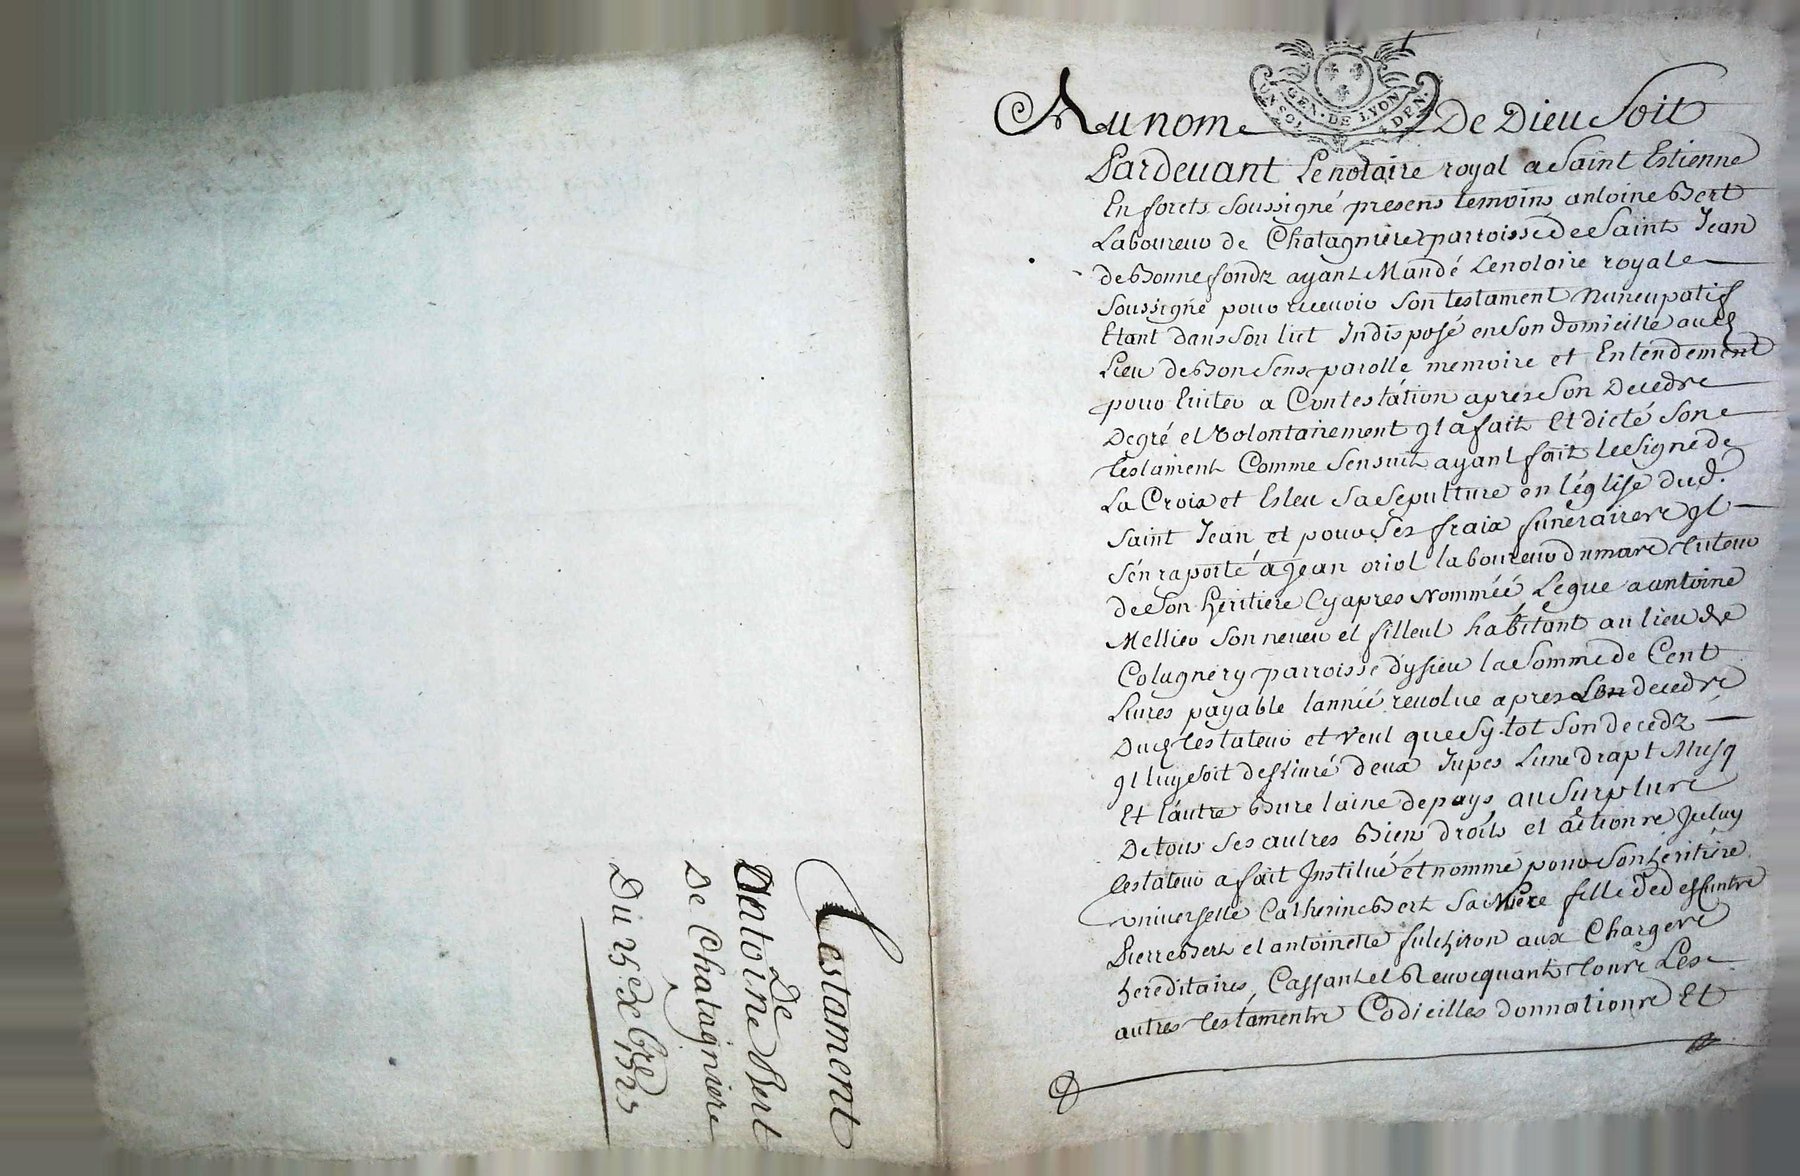 Testament
De
Antoine Bert
De Chatagniere
Du 25e Xbre 1723
GEN. DE LYON
UN SOL 4 DEN.
Au nom De Dieu Soit
Pardevant Le notaire royal a Saint Estienne
En forets Soussigné presens temoins antoine Bert
Laboureur de Chatagniere parroisse de Saint Jean
de Bonnefondz ayant Mandé Le notaire royale
Soussigné pour recevoir Son testament Nuncupatif
Etant dans Son lict Indisposé en Son domicille aud
Lieu de Bon Sens parolle memoire et Entendement
pour Eviter a Contestation apres Son Decedre
De gré et Volontairement ql a fait Et dicté Son
testament Comme Sensuit ayant fait le Signe de
La Croix et Esleu Sa Sepulture en l'église dud.
Saint Jean et pour Ses fraix funerairere ql
S'en raporte a Jean oriol laboureur dumare tuteur
de Son heritiere Cy apres Nommée Legue a antoine
Mellier Son neveu et filleul habitant au lieu de
Colugnery parroisse d'ysieu la Somme de Cent
Livres payable lannéé revolue apres Son decedre
Dud testateur et Veut que Sy tot Son decedz
ql luy Soit deslivré deux Jupes Lune drapt Musq
Et l'autre Bure laine de pays au Surplure
De tous Ses autres Biens droits et actionre Iceluy
testateur a fait Institué et nommé pour Son heritiere
universelle Catherine Bert Sa Niece fille de deffuntre
Pierre Bert et antoinette fulchiron aux Chargere
hereditaires, Cassant et Revocquant toure Les
autres testamentre Codicilles donnationre Et